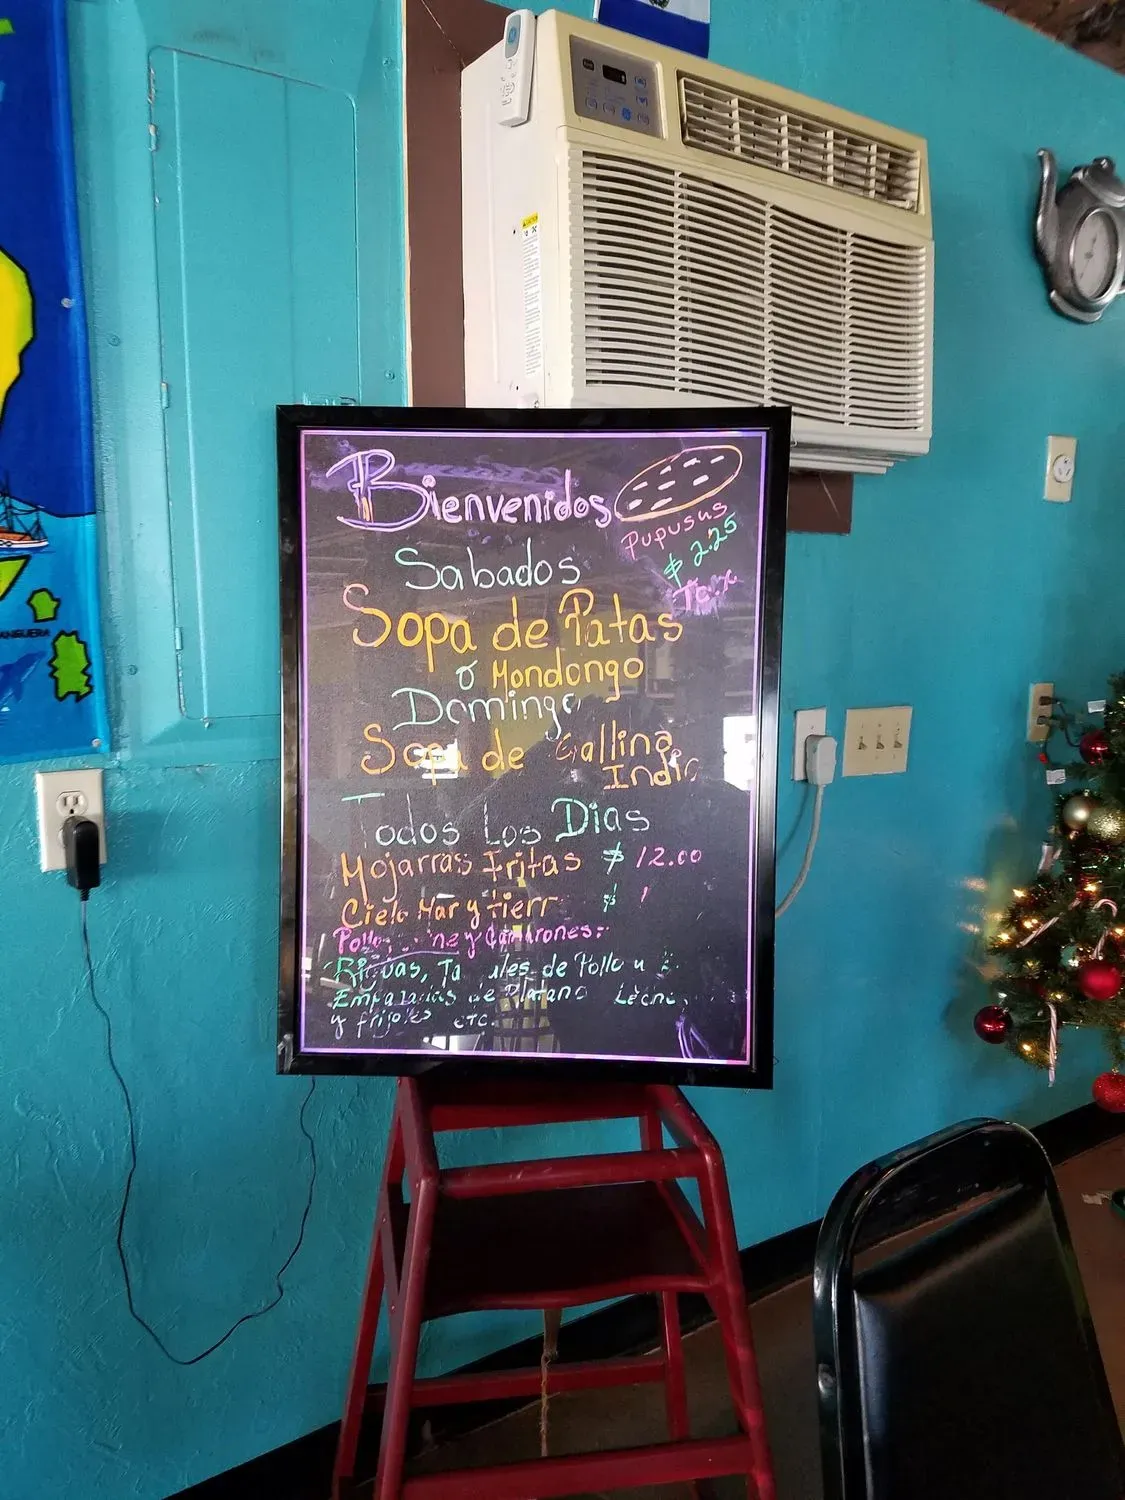 Bienvenidos
Pupusus
$ 2.25
Tax
Sabados
Sopa de Patas
o Mondongo
Domingo
Sopa de Gallina
India
Todos Los Dias
Mojarras Fritas $ 12.00
Cielo Mar y Tierr $ 1
Pollo, ne y Camarones.
Riguas, Ta les de Pollo u
Empanadas de Platano Leche,
y frijoles etc.
ANGUERA